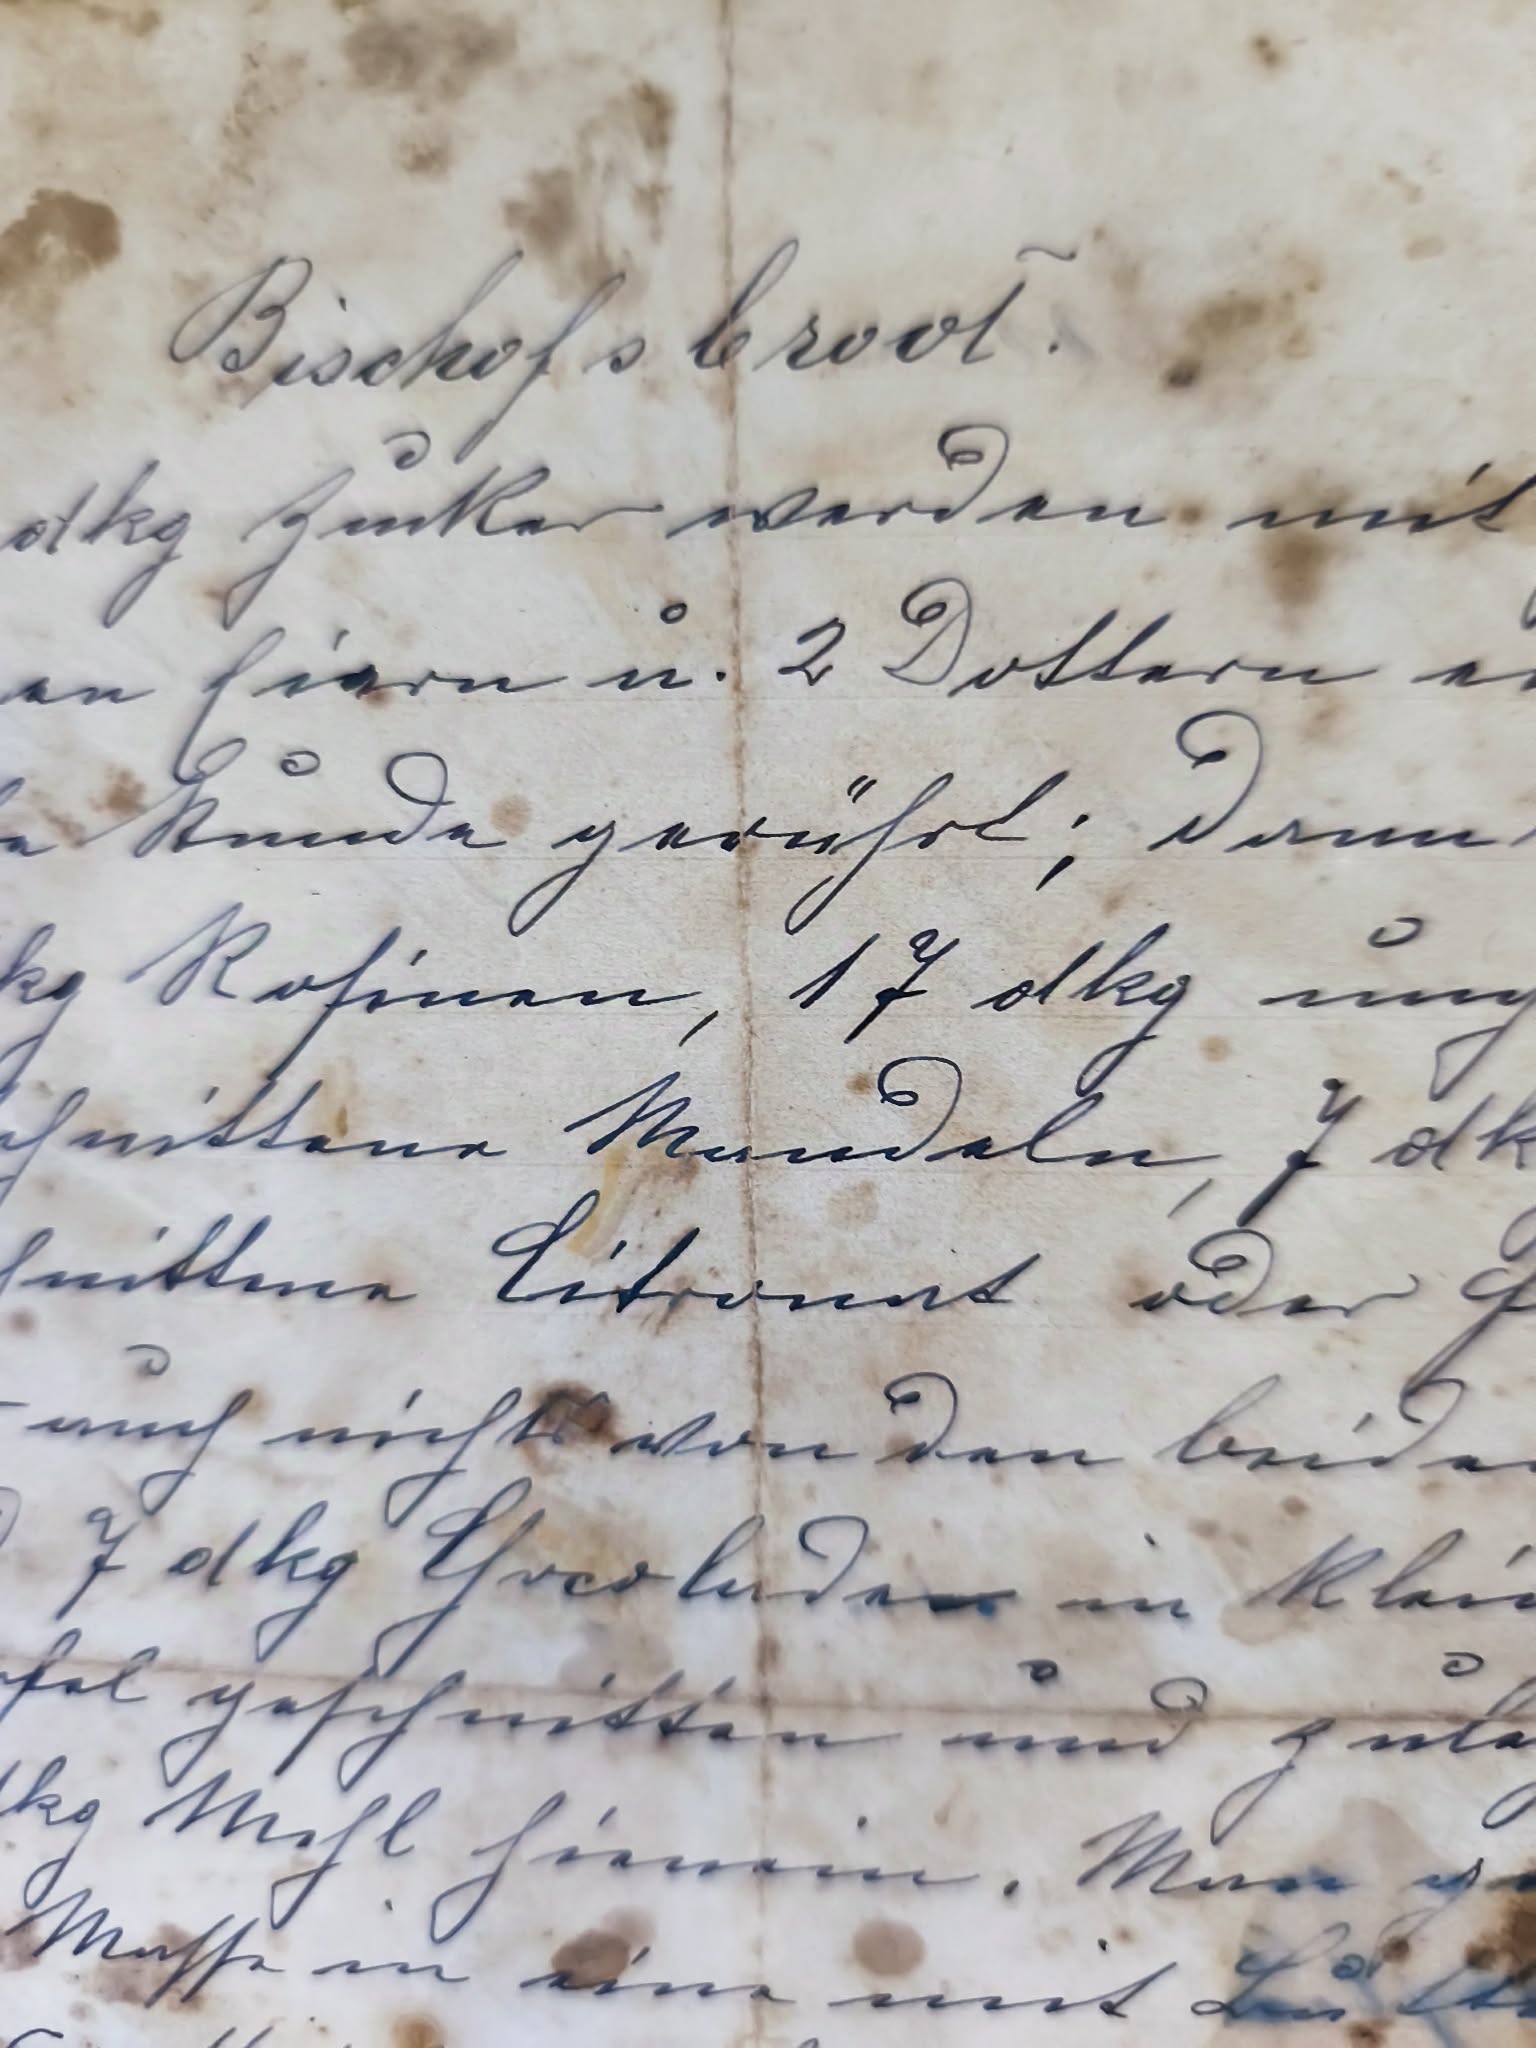 Bischofsbrod.
dkg Zucker werden mit
en Eiern u. 2 Dottern
Stunde gerührt; dann
kg Rosinen, 17 dkg
schnittene Mandeln, 7 dk
schnittene Citronat oder
auch nichts von den beiden
7 dkg Chocolade in klein
geschnitten und
dkg Mehl hinein. Man
Masse in eine mit